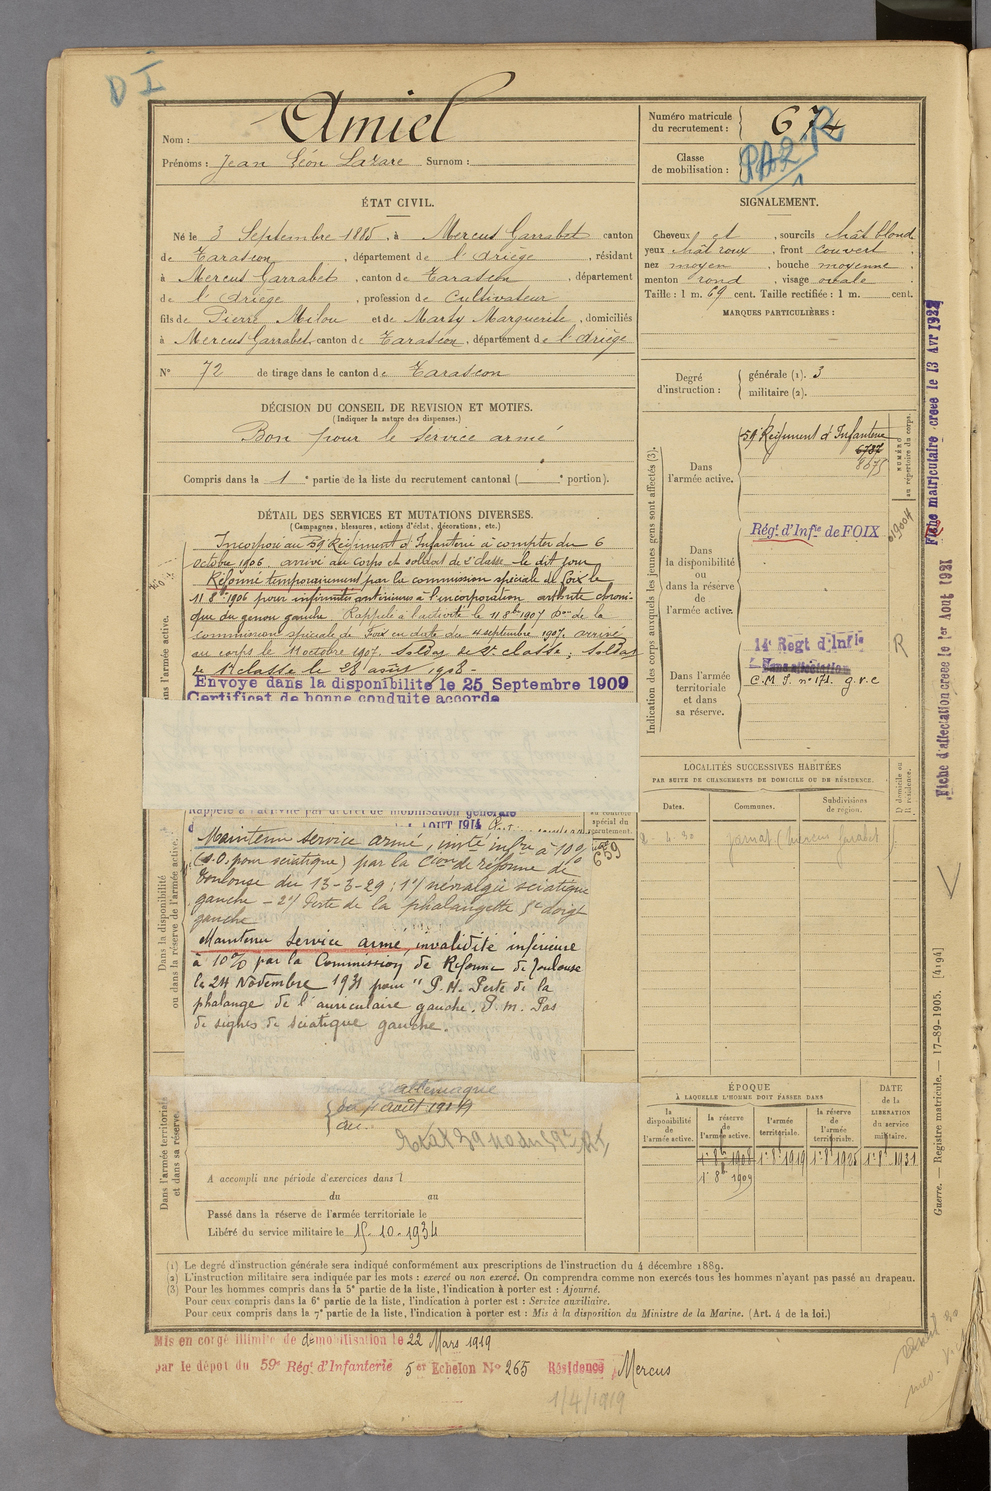 D I
Nom : Amiel
Prénoms : Jean Léon Lazare Surnom :
Numéro matricule
du recrutement : 674
Classe
de mobilisation :
ÉTAT CIVIL.
Né le 3 Septembre 1885, à Mercus Garrabet canton
de Tarascon, département de l'Ariège, résidant
à Mercus Garrabet, canton de Tarascon, département
de l'Ariège, profession de Cultivateur
fils de Pierre Milou et de Marty Marguerite, domiciliés
à Mercus Garrabet, canton de Tarascon, département de l'Ariège
N° 72 de tirage dans le canton de Tarascon
SIGNALEMENT.
Cheveux et, sourcils chât blond
yeux chât roux, front couvert
nez moyen, bouche moyenne
menton rond, visage ovale
Taille : 1 m. 69 cent. Taille rectifiée : 1 m. cent.
MARQUES PARTICULIÈRES :
Degré
d'instruction :
générale (1). 3
militaire (2).
DÉCISION DU CONSEIL DE REVISION ET MOTIFS.
(Indiquer la nature des dispenses.)
Bon pour le service armé
Compris dans la 1e partie de la liste du recrutement cantonal ( e portion).
DÉTAIL DES SERVICES ET MUTATIONS DIVERSES.
(Campagnes, blessures, actions d'éclat, décorations, etc.)
Incorporé au 59 Régiment d'Infanterie à compter du 6
octobre 1906. arrivé au corps et soldat de 2e classe le dit jour
Réformé temporairement par la commission spéciale de Foix le
11 8bre 1906 pour infirmités antérieures à l'incorporation arthrite chroni-
que du genou gauche. Rappelé à l'activité le 11 8bre 1907 Don de la
commission spéciale de Foix en date du 4 septembre 1907. arrivé
au corps le 11 octobre 1907. Soldat de 2e classe; Soldat
de 1e classe le 28 août 1908 -
Envoyé dans la disponibilité le 25 Septembre 1909
Certificat de bonne conduite accordé
Rappelé à l'activité par décret de mobilisation générale
AOUT 1914
Maintenu service armé, invté infre à 10%
(S.O. pour sciatique) par la Cion de réforme de
Toulouse du 13-3-29 : 1°/ névralgie sciatique
gauche - 2°/ Perte de la phalangette 5e doigt
gauche
Maintenu service armé, invalidité inférieure
à 10% par la Commission de Réforme de Toulouse
le 24 Novembre 1931 pour "P.H. Perte de la
phalange de l'auriculaire gauche. P.m. Pas
de signes de sciatique gauche.
spécial du
recrutement.
659
Dans la disponibilité
ou dans la réserve de l'armée active.
Dans l'armée territoriale
et dans sa réserve.
Allemagne
du 4 août 1914
au
A accompli une période d'exercices dans l
du au
Passé dans la réserve de l'armée territoriale le
Libéré du service militaire le 15-10-1934
Indication des corps auxquels les jeunes gens sont affectés (3).
Dans
l'armée active.
59 Régiment d'Infanterie
6787
8675
NUMÉRO
au répertoire du corps.
Dans
la disponibilité
ou
dans la réserve
de
l'armée active.
Régt d'Infie de FOIX
Dans l'armée
territoriale
et dans
sa réserve.
14e Regt d'Infie
Sans affectation
C.M.I. n° 171. g.v.c
R
LOCALITÉS SUCCESSIVES HABITÉES
PAR SUITE DE CHANGEMENTS DE DOMICILE OU DE RÉSIDENCE.
Dates.
Communes.
Subdivisions
de région.
D domicile ou
R résidence.
ÉPOQUE
À LAQUELLE L'HOMME DOIT PASSER DANS
la
disponibilité
de
l'armée active.
la réserve
de
l'armée active.
l'armée
territoriale.
la réserve
de
l'armée
territoriale.
DATE
de la
LIBÉRATION
du service
militaire.
1e 8b 1908
1e 8b 1919
1e 8b 1925
1e 8b 1931
1e 8b 1909
(1) Le degré d'instruction générale sera indiqué conformément aux prescriptions de l'instruction du 4 décembre 1889.
(2) L'instruction militaire sera indiquée par les mots : exercé ou non exercé. On comprendra comme non exercés tous les hommes n'ayant pas passé au drapeau.
(3) Pour les hommes compris dans la 5e partie de la liste, l'indication à porter est : Ajourné.
Pour ceux compris dans la 6e partie de la liste, l'indication à porter est : Service auxiliaire.
Pour ceux compris dans la 7e partie de la liste, l'indication à porter est : Mis à la disposition du Ministre de la Marine. (Art. 4 de la loi.)
Mis en congé illimité de démobilisation le 22 Mars 1919
par le dépôt du 59e Régt d'Infanterie 5er Echelon N° 265 Résidence Mercus
1/4/1919
Fiche matriculaire créée le 13 Avr 1932
Fiche d'affectation créée le 1er Aout 1931
Guerre. — Registre matricule. — 17-89-1905. [4194]